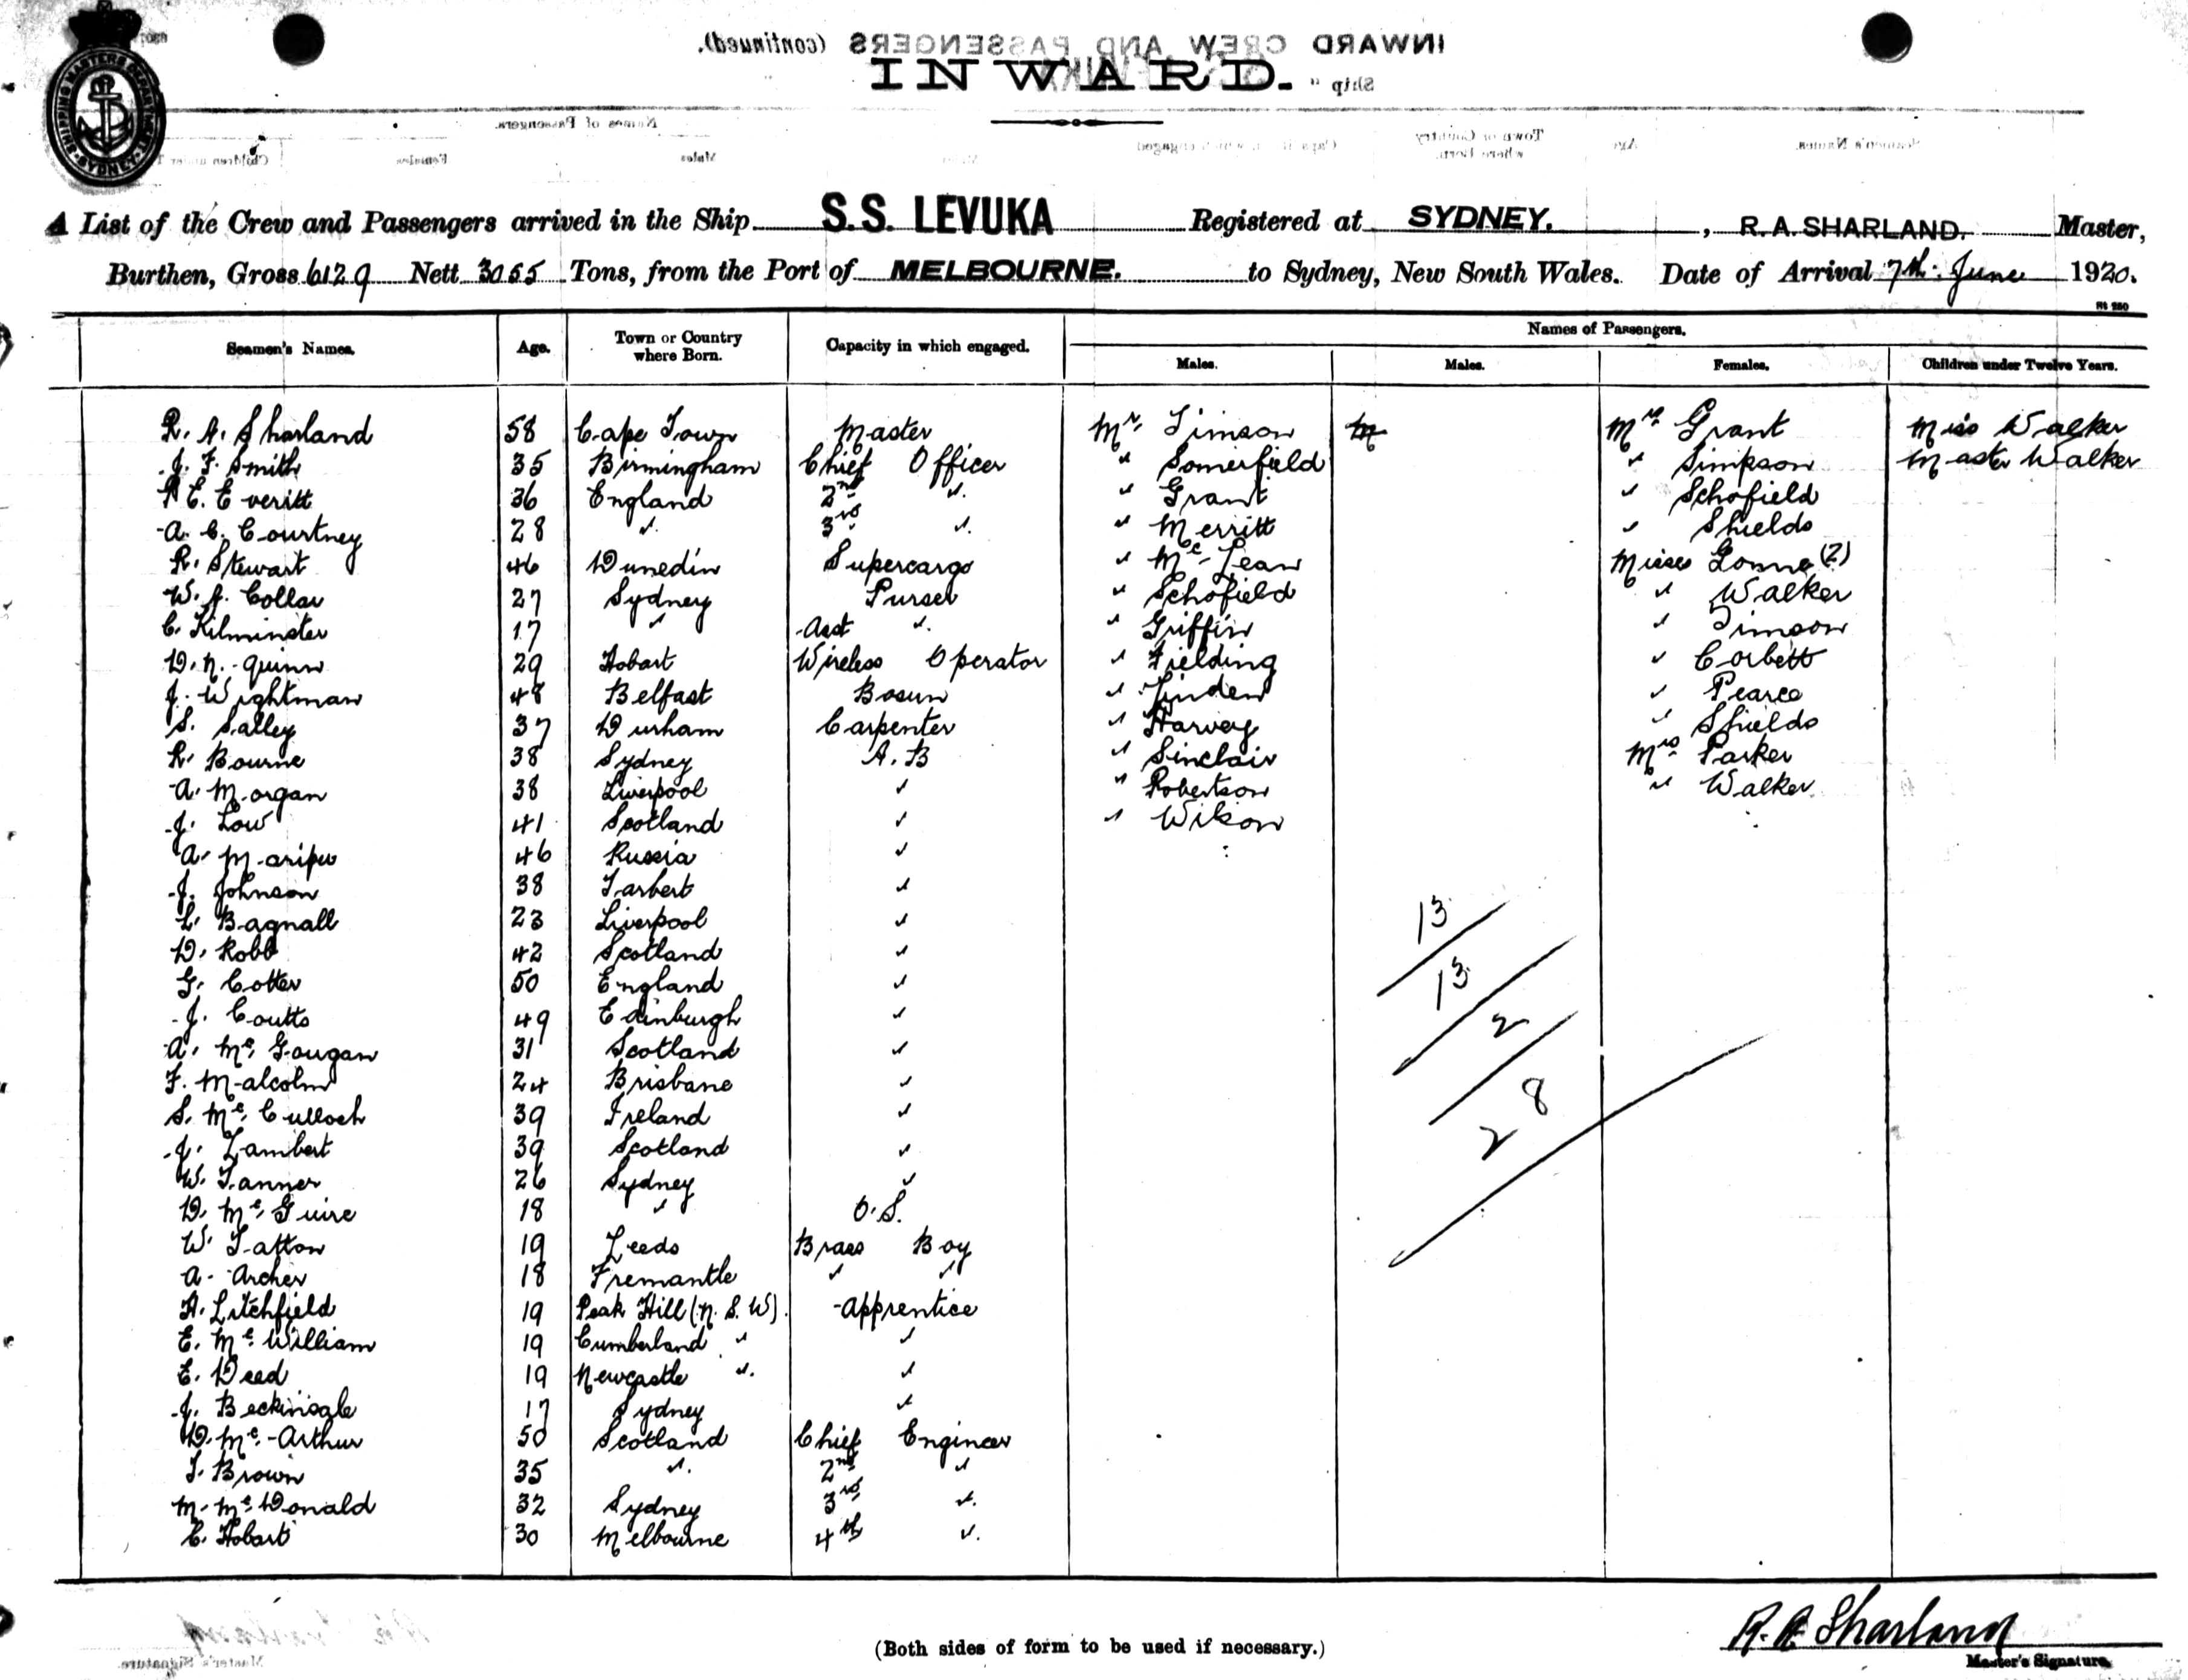 INWARD CREW AND PASSENGERS (continued).
Ship "
INWARD.
SHIPPING MASTERS DEPARTMENT SYDNEY
A List of the Crew and Passengers arrived in the Ship S.S. LEVUKA Registered at SYDNEY. , R. A. SHARLAND. Master,
Burthen, Gross 6129 Nett 3055 Tons, from the Port of MELBOURNE. to Sydney, New South Wales. Date of Arrival 7th June 1920.
Seamen's Names. Age. Town or Country where Born. Capacity in which engaged. Names of Passengers.
Males. Males. Females. Children under Twelve Years.
R. A. Sharland 58 Cape Town Master Mr. Timson M Mrs Grant Miss Walker
J. F. Smith 35 Birmingham Chief Officer " Somerfield " Simpson Master Walker
E. Everitt 36 England 2nd " " Grant " Schofield
A. C. Courtney 28 " 3rd " " Merritt " Shields
R. Stewart 46 Dunedin Supercargo " McLean Misses (2)
W. A. Collar 27 Sydney Purser " Schofield " Walker
C. Kilminster 17 " Asst " " Griffin " Timson
D. N. Quinn 29 Hobart Wireless Operator " Fielding " Corbett
J. Wightman 48 Belfast Bosun " Linden " Pearce
S. Salley 37 Durham Carpenter " Harvey " Shields
R. Bourne 38 Sydney A.B " Sinclair Mrs Parker
A. Morgan 38 Liverpool " " Robertson " Walker
J. Low 41 Scotland " " Wilson
A. 46 Russia "
J. Johnson 38 Tarbert "
L. Bagnall 23 Liverpool "
D. Robb 42 Scotland "
G. Cotter 50 England "
J. Coutts 49 Edinburgh "
A. McGougan 31 Scotland "
F. Malcolm 24 Brisbane "
S. McCulloch 39 Ireland "
J. Lambert 39 Scotland "
W. Tanner 26 Sydney "
D. McGuire 18 " O.S.
W. Tatton 19 Leeds Brass Boy
A. Archer 18 Fremantle " "
A. Litchfield 19 Peak Hill (N.S.W). Apprentice
E. McWilliam 19 Cumberland " "
E. Deed 19 Newcastle " "
J. Beckinsale 17 Sydney "
D. McArthur 50 Scotland Chief Engineer
T. Brown 35 " 2nd "
M. McDonald 32 Sydney 3rd "
C. Hobart 30 Melbourne 4th "
13
13
2
28
(Both sides of form to be used if necessary.)
R. A. Sharland
Master's Signature.
Master's Signature.